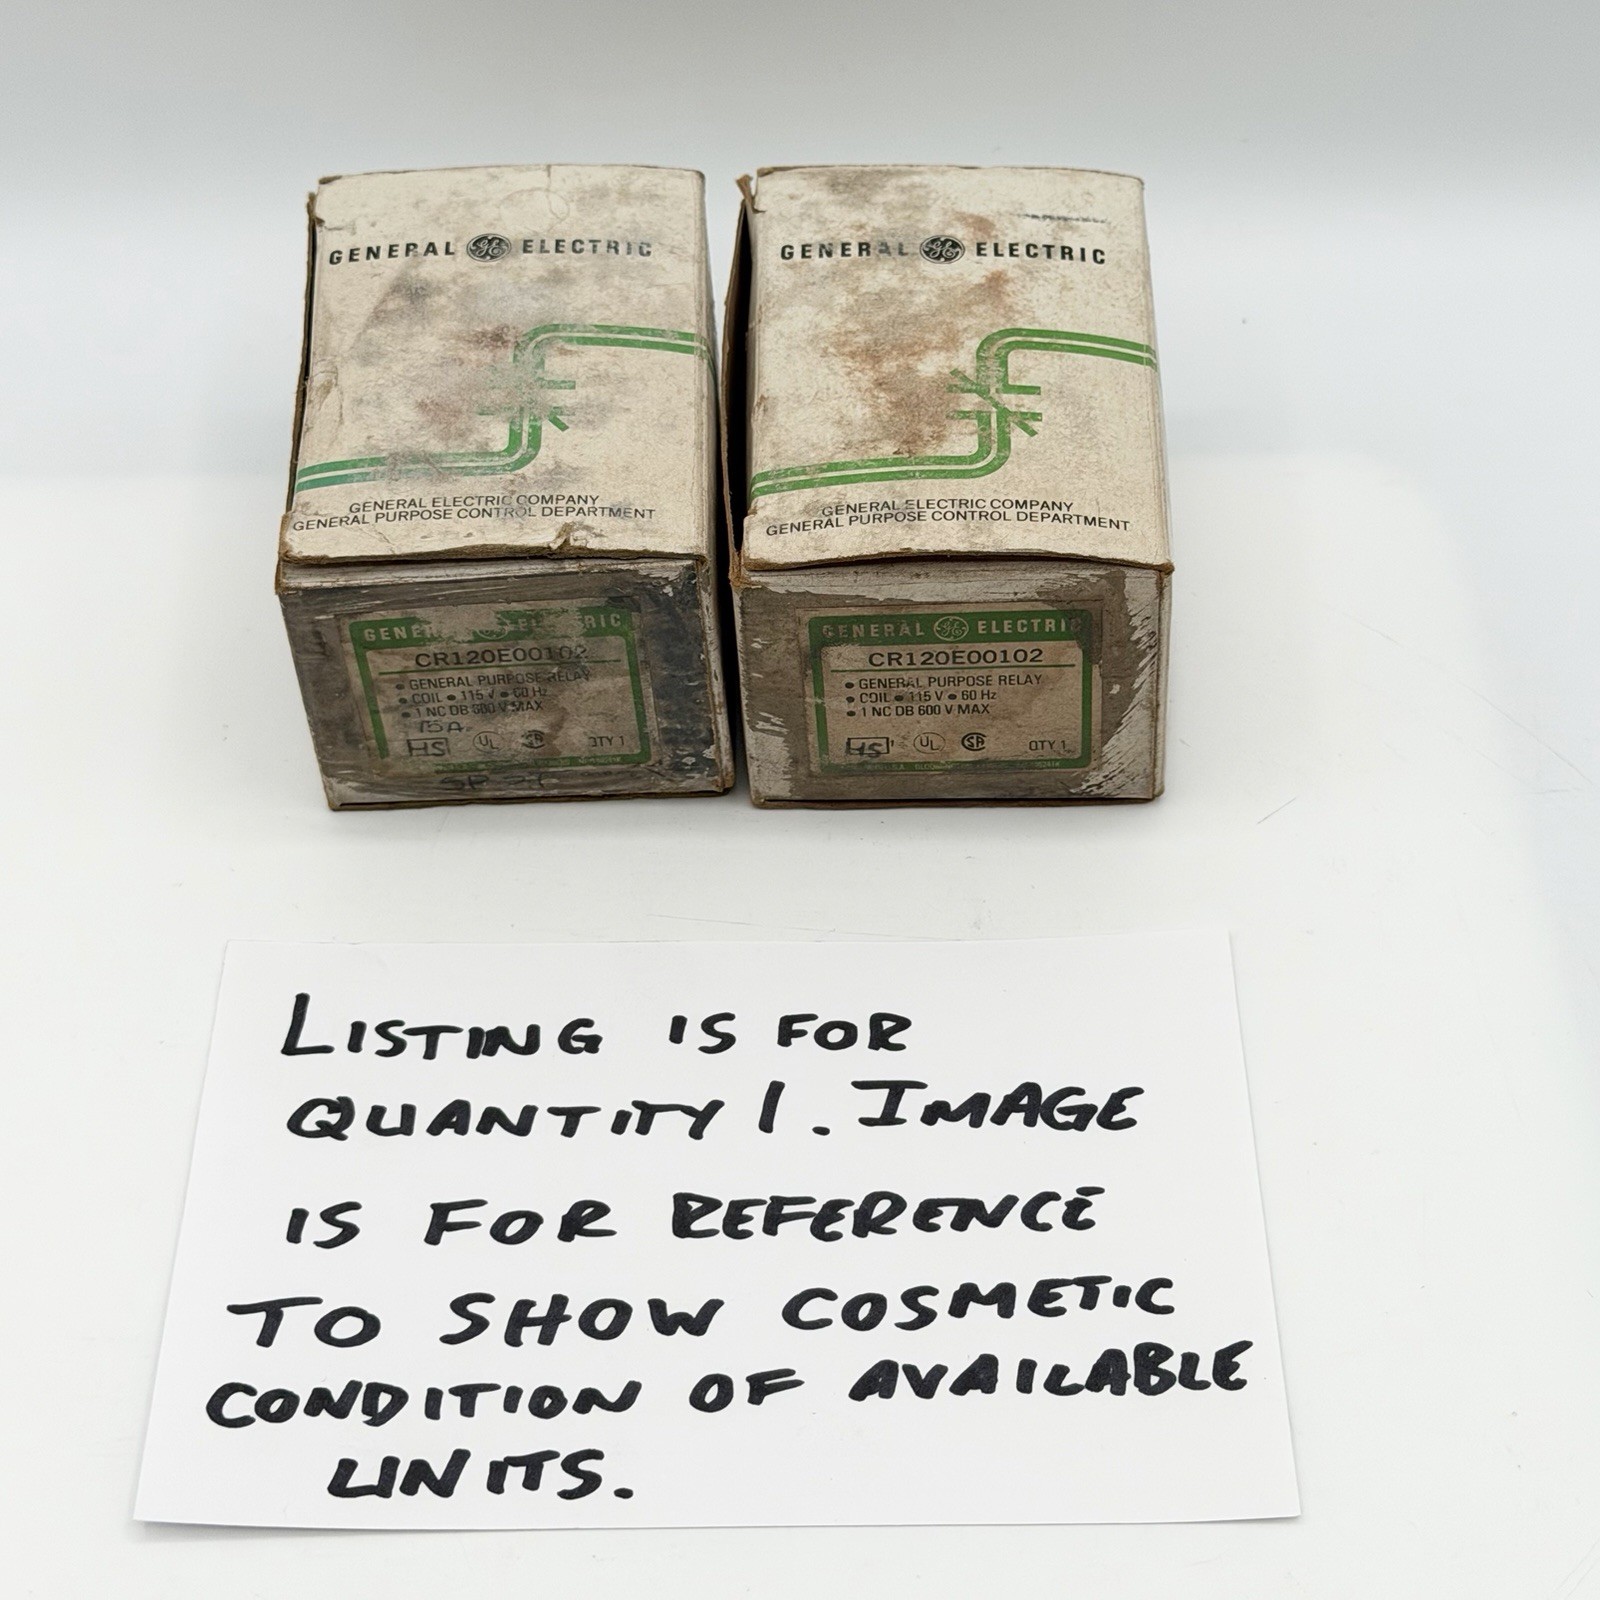 GENERAL GE ELECTRIC
GENERAL ELECTRIC COMPANY
GENERAL PURPOSE CONTROL DEPARTMENT
GENERAL GE ELECTRIC
CR120E00102
• GENERAL PURPOSE RELAY
• COIL • 115 V • 60 Hz
• 1 NC DB 600 V MAX
15A
HS UL SA QTY 1
GENERAL GE ELECTRIC
GENERAL ELECTRIC COMPANY
GENERAL PURPOSE CONTROL DEPARTMENT
GENERAL GE ELECTRIC
CR120E00102
• GENERAL PURPOSE RELAY
• COIL • 115 V • 60 Hz
• 1 NC DB 600 V MAX
HS UL SA QTY 1
LISTING IS FOR
QUANTITY 1. IMAGE
IS FOR REFERENCE
TO SHOW COSMETIC
CONDITION OF AVAILABLE
UNITS.